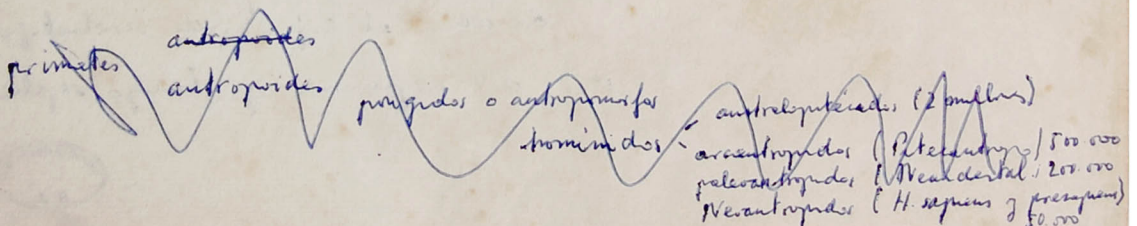 antropoides
primates
antropoides
pongidos o antropomorfos
homínidos
australopitecidos (2 millones)
arcantropidos (Pitecantropo) 500.000
paleoantropidos (Neandertal: 200.000
Neoantropidos (H. sapiens y presapiens)
50.000